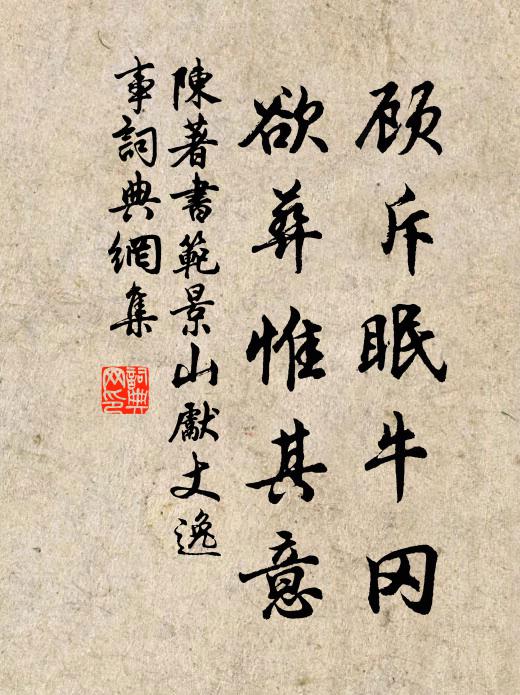 顾斥眠牛冈
欲葬惟其意
陳著書範景山獻丈逸
事詞典網集
詞典
网印